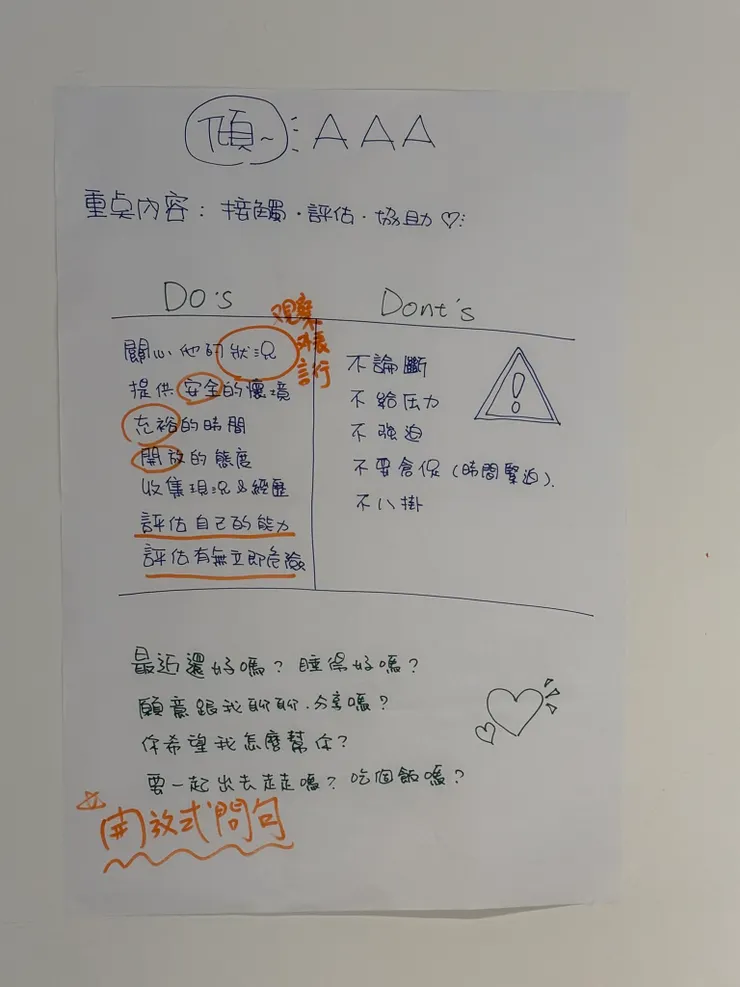 傾~ : AAA
重点內容：接觸·評估·協助♡
Do's
觀察
外表
言行
關心他的狀況
提供安全的環境
充裕的時間
開放的態度
收集現況&經歷
評估自己的能力
評估有無立即危險
Dont's
不論斷
不給压力
不強迫
不要倉促（時間緊迫）.
不八掛
最近還好嗎？睡得好嗎？
願意跟我聊聊.分享嗎？
你希望我怎麼幫你？
要一起出去走走嗎？吃個飯嗎？
☆開放式問句